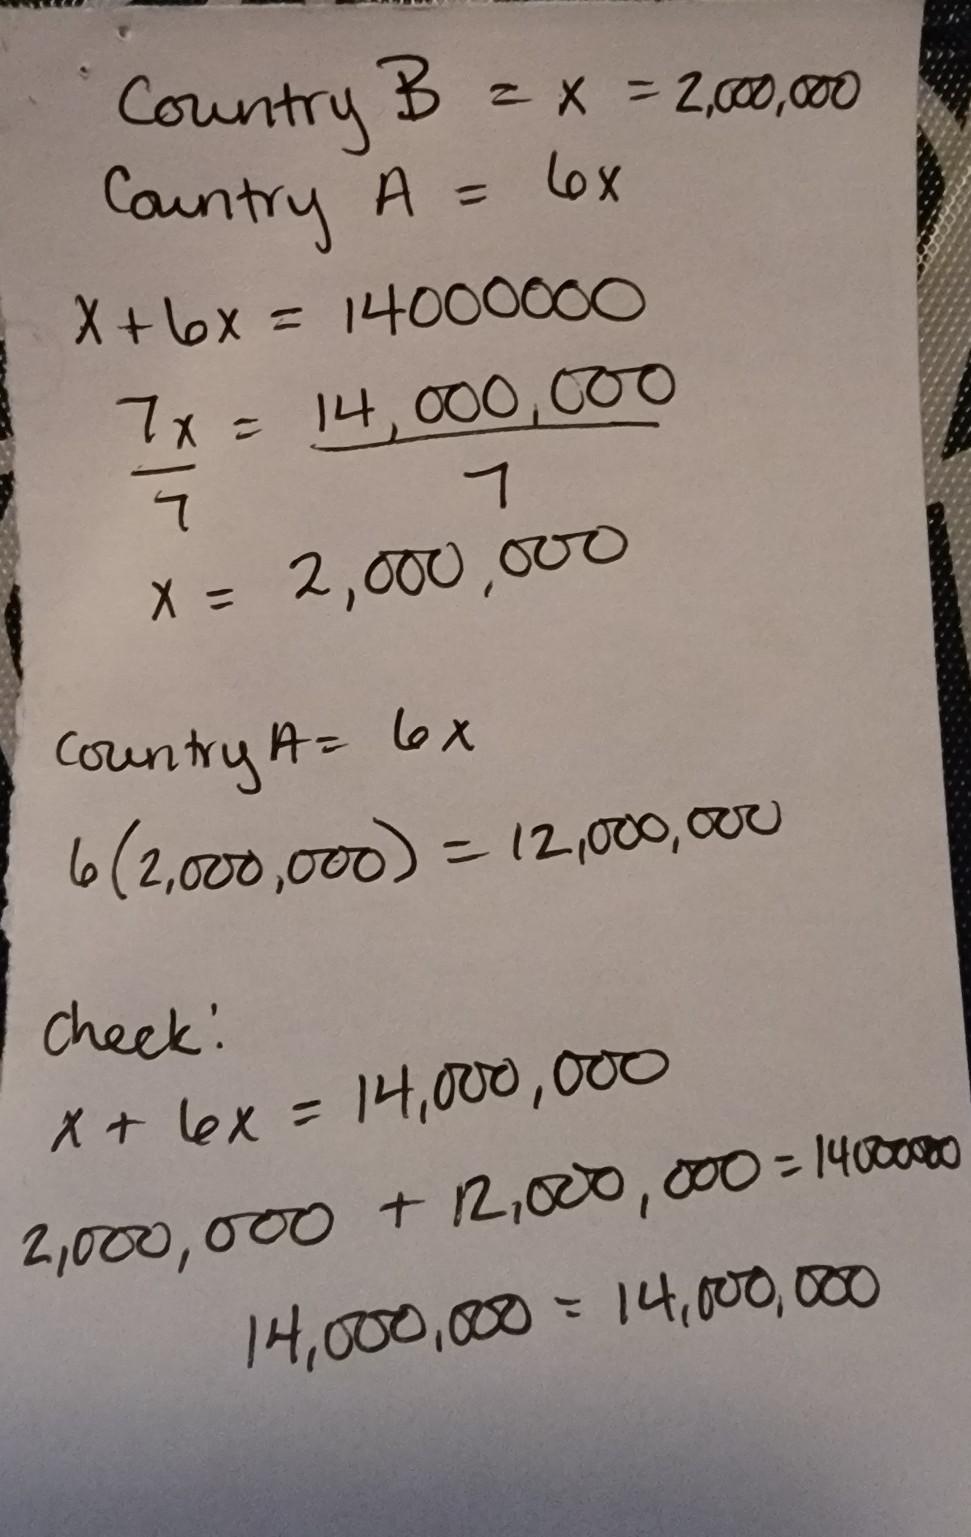 Country B = x = 2,000,000
Country A = 6x
x + 6x = 14000000
7x = 14,000,000
7 7
x = 2,000,000
Country A = 6x
6(2,000,000) = 12,000,000
Check:
x + 6x = 14,000,000
2,000,000 + 12,000,000 = 14000000
14,000,000 = 14,000,000